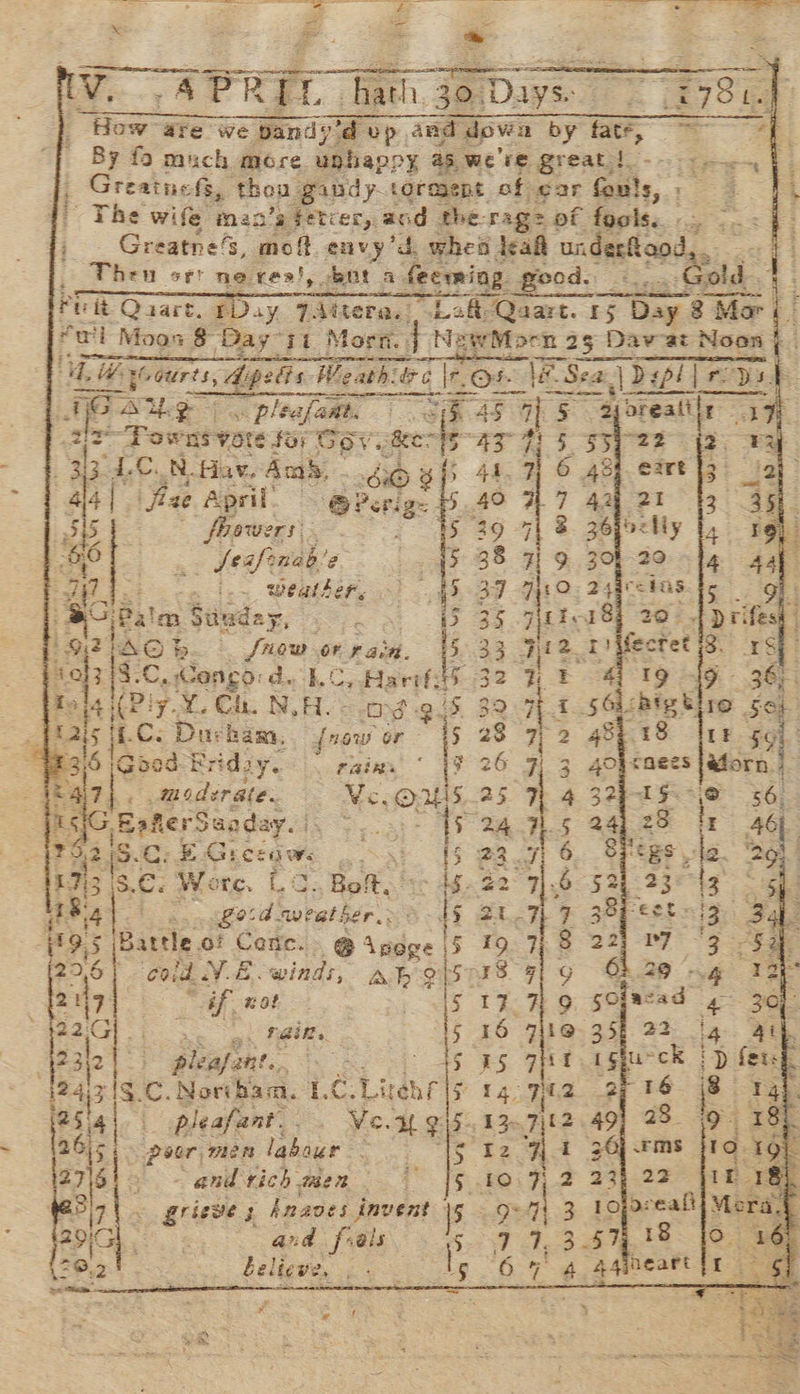 IV. APRIL hath 30 Days. 1781.
How are we bandy'd up and down by fate,
By ſo much more unhappy as we're great!
Greatneſs, thou gaudy torment of our ſouls,
The wiſe man's fetter, and the rage of fools.
Greatneſs, moſt envy'd, when leaſt underſtood,
Then art no real, but a ſeeming good. Gold
Firſt Quart. 1 Day 7 Aftern. Laſt Quart. 15 Day 8 Mor
Full Moon 8 Day 11 Morn. New Moon 23 Day at Noon
Courts, Aſpects Weath. &c r. ☉ ſ. F. Sea Depl r. D's
pleaſant. 5 45 7 5 2 breaſt r 17
2 2 Towns vote for Gov. &c. 5 43 7 5 55 22 2 12
3 3 I.C. N. Hav. Amh. 5 41 7 6 48 eart 3 2
4 4 fine April @ Perige 5 40 7 7 42 21 3 35
5 5 ſhowers 5 39 7 8 36 belly 4 19
6 6 ſeaſonable 5 38 7 9 30 20 4 44
7 7 weather, 5 37 7 10 24 reins 5 9
8 G Palm Sunday, 5 35 7 11 18 20 D riſes
9 2 ſnow or rain. 5 33 7 12 11 ſecret 8 15
10 3 S.C. Concord. I.C. Hartf. 5 32 7 1 4 19 9 36
11 4 (Ply. Y. Ch. N.H. 5 30 7 1 56 thigh 10 50
12 5 I.C. Durham, ſnow or 5 28 7 2 48 18 11 59
13 6 Good Friday. rain. 5 26 7 3 40 knees Morn.
14 7 moderate. 5 25 7 4 32 15 0 56
15 G Eaſter Sunday. 5 24 7 5 24 28 1 46
16 2 S.C. E Greenw. 5 23 7 6 8 legs 2 29
17 3 S.C. Worc. I.C. Boſt. 5 22 7 6 52 23 3 5
18 4 good weather. 5 21 7 7 38 feet 3 34
19 5 Battle of Conc. @ Apoge 5 19 7 8 22 17 3 52
20 6 cold N.E. winds, 5 18 7 9 6 29 4 12
21 7 if not 5 17 7 9 50 head 4 30
22 G rain. 5 16 7 10 35 22 4 41
23 2 pleaſant. 5 15 7 11 15 neck D ſets
24 3 S.C. Northam. I.C. Litchf 5 14 7 12 2 16 8 14
25 4 pleaſant. 5 13 7 12 49 28 9 18
26 5 poor men labour 5 12 7 1 36 arms 10 19
27 6 and rich men 5 10 7 2 23 22 11 18
28 7 grieve; knaves invent 5 9 7 3 10 breaſt Morn.
29 G and fools 5 7 7 3 57 18 0 16
30 2 believe. 5 6 7 4 44 heart 1 5